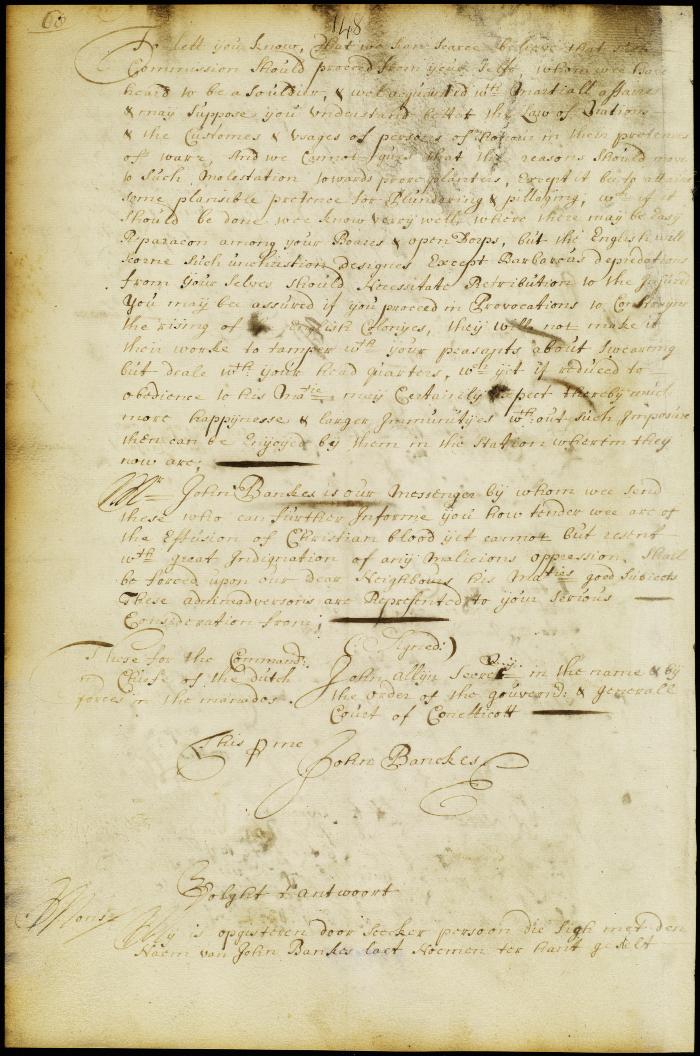 60
148
To lett you know, that we can scarce believe that such
Commission should proceed from your selfe whom wee have
heard to be a souldier, & well acquainted wth Martiall affaires
& may suppose you understand better the Law of Nations
& the Customes & usages of persons of honour in their pretences
of warr, And we Cannot that the reasons should move
to such Molestation towards poore planters, Except it be to attaine
some plausible pretence for Plundering & pillaging, wch if it
should be done, wee know very well where there may be Easy
Reparacon among your Boares & open Dorps, but the English will
scorne such unchristian designes Except Barbarous depredations
from your selves should Necessitate Retribution to the Injured
You may be assured if you proceed in Provocations to Constrayne
the rising of English Colonyes, they will not make it
their worke to tamper wth your peasants about swearing
but deale wth your head quarters, wch yet if reduced to
obedience to his Matie may Certainely Expect thereby much
more happynesse & larger Immunityes wthout such Imposure
then can be Enjoyed by them in the station wherein they
now are;
Mr John Bankes is our Messenger by whom wee send
these who can further Informe you how tender wee are of
the Effusion of Christian blood yet cannot but resent
wth great Indignation of any Malicious oppression, shall
be forced upon our dear Neighbours his Maties good Subiects
These admmadversons are Represented to your serious
Consideration from;
(Signed:)
These for the Command:
in Chiefe of the dutch
forces in the manados.
John Allijn Secret in the name & by
the order of the gouvern: & generall
Court of Conetticott
This p me
John Banckes
Volght d'antwoort
Monsr
My is opgisteren door seecker persoon die sigh met den
Naem van John Bankes laet Noemen ter hant gestelt